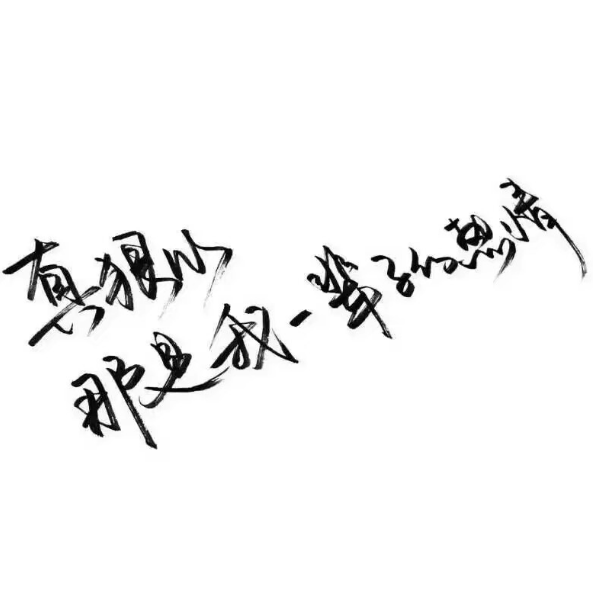 真狠心
那是我一辈子的热情